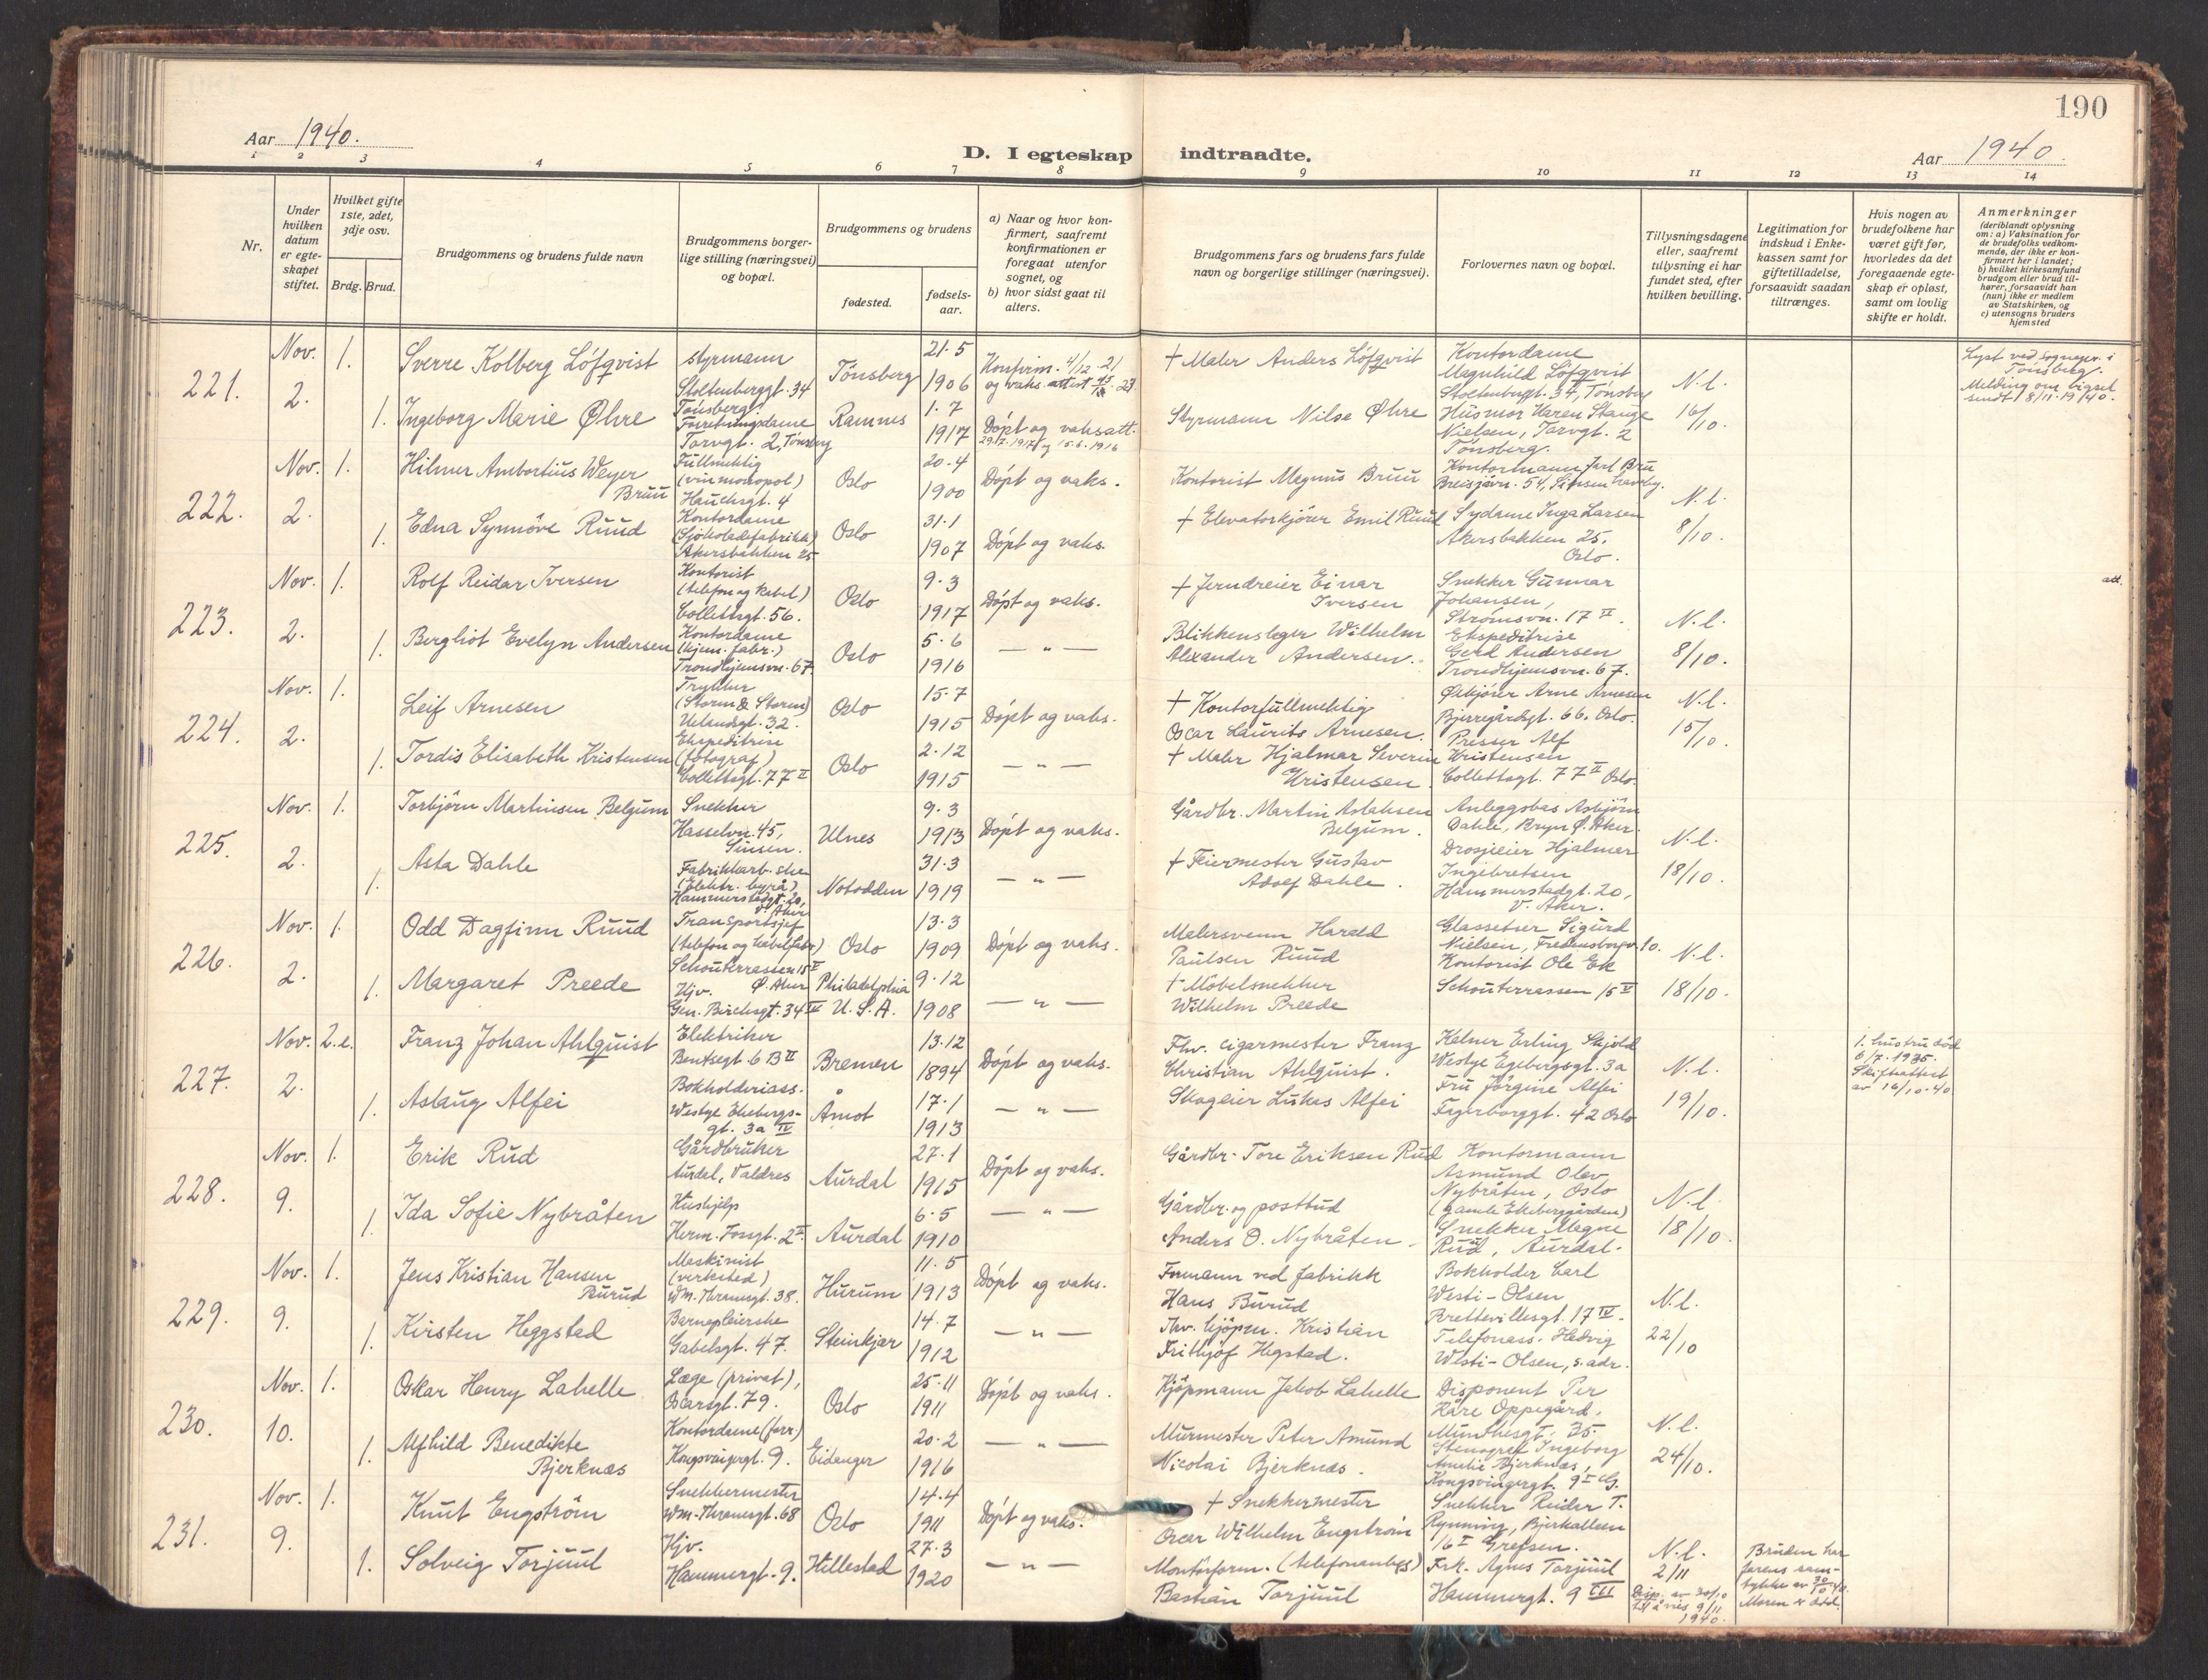 190
Aar 1940.
D. I egteskap indtraadte.
Aar 1940.
1 2 3 4 5 6 7 8 9 10 11 12 13 14
Nr.
Under hvilken datum er egteskapet stiftet.
Hvilket gifte 1ste, 2det, 3dje osv.
Brdg. Brud.
Brudgommens og brudens fulde navn
Brudgommens borgerlige stilling (næringsvei) og bopæl.
Brudgommens og brudens
fødested.
fødselsaar.
a) Naar og hvor konfirmert, saafremt konfirmationen er foregaat utenfor sognet, og
b) hvor sidst gaat til alters.
Brudgommens fars og brudens fars fulde navn og borgerlige stillinger (næringsvei).
Forlovernes navn og bopæl.
Tillysningsdagene eller, saafremt tillysning ei har fundet sted, efter hvilken bevilling.
Legitimation for indskud i Enkekassen samt for giftetilladelse, forsaavidt saadan tiltrænges.
Hvis nogen av brudefolkene har været gift før, hvorledes da det foregaaende egteskap er opløst, samt om lovlig skifte er holdt.
Anmerkninger
(deriblandt oplysning om: a) Vaksination for de brudefolks vedkommende, der ikke er konfirmert her i landet; b) hvilket kirkesamfund brudgom eller brud tilhører, forsaavidt han (hun) ikke er medlem av Statskirken, og c) utensogns bruders hjemsted
221. Nov. 2. 1. Sverre Kolberg Löfqvist
styrmann
Stoltenberggt. 34
Tönsberg.
Tönsberg
21.5
1906
Konfirm. 4/12-21
og vaks. attest
† Maler Anders Löfqvist
Kontordame
Magnhild Löfqvist
Stoltenberggt. 34, Tönsberg
N.l.
16/10.
Lyst ved sognepr. i
Tönsberg.
Melding om vigsel
sendt 18/11-1940.
1. Ingeborg Marie Øhre
Forretningsdame
Torvgt. 2, Tönsberg
Ramnes
1.7
1917
Döpt og vaks.att.
29.7.1917 og 15.6.1916
Styrmann Nilse Øhre
Husmor Karen Stange
Nielsen, Torvgt. 2
Tönsberg.
222. Nov. 2. 1. Hilmer Ambortius Weyer
Bruu
Fullmektig
(vinmonopol)
Hauchsgt. 4
Oslo
20.4
1900
Döpt og vaks.
Kontorist Magnus Bruu
Kontormann Jarl Bru
Breisjövn. 54, Sinsen haveby.
N.l.
8/10.
1. Edna Synnöve Ruud
Kontordame
(Sjokoladefabrikk)
Akersbakken 25
Oslo
31.1
1907
Döpt og vaks.
† Elevatorkjörer Emil Ruud
Sydame Inga Larsen
Akersbakken 25.
Oslo.
223. Nov. 2. 1. Rolf Reidar Iversen
Kontorist
(telefon og kabel)
Collettsgt. 56.
Oslo
9.3
1917
Döpt og vaks.
† Jerndreier Einar
Iversen
Snekker Gunnar
Johansen,
Strömsvn. 17 II.
N.l.
8/10.
att.
1. Bergliot Evelyn Andersen
Kontordame
(kjem. fabr.)
Trondhjemsvn. 67.
Oslo
5.6
1916
— „ —
Blikkenslager Wilhelm
Alexander Andersen.
Ekspeditrise
Gerd Andersen
Trondhjemsvn. 67.
224. Nov. 2. 1. Leif Arnesen
Trykker
(Storm & Storm)
Uelandsgt. 32.
Oslo
15.7
1915
Döpt og vaks.
† Kontorfullmektig
Oscar Laurits Arnesen.
Ölkjörer Arne Arnesen
Bjerregårdsgt. 66. Oslo.
N.l.
15/10.
1. Tordis Elisabeth Kristensen
Ekspeditrise
(fotograf)
Collettsgt. 77 II
Oslo
2.12
1915
— „ —
† Maler Hjalmar Severin
Kristensen.
Presser Alf
Kristensen
Collettsgt. 77 II Oslo.
225. Nov. 2. 1. Torbjörn Martinsen Belgum
Snekker
Hasselvn. 45,
Sinsen.
Ulnes
9.3
1913
Döpt og vaks.
Gårdbr. Martin Aslaksen
Belgum.
Anleggsbas Asbjörn
Dahle, Bryn Ø. Aker.
N.l.
18/10.
1. Asta Dahle
Fabrikkarb.ske
(Elektr. byrå)
Hammerstadgt. 20,
V. Aker
Notodden
31.3
1919
— „ —
† Feiermester Gustav
Adolf Dahle.
Drosjeeier Hjalmar
Ingebretsen
Hammerstadgt. 20,
V. Aker.
226. Nov. 2. 1. Odd Dagfinn Ruud
Transportsjef
(telefon og kabelfabr.)
Schouterrassen 15 V
Ø. Aker
Oslo
13.3
1909
Döpt og vaks.
Malersvenn Harald
Paulsen Ruud
Glassetser Sigurd
Nielsen, Fredensborgv. 10.
N.l.
18/10.
1. Margaret Preede
Hjv.
Gen. Birchsgt. 34 IV
Philadelphia
U.S.A.
9.12
1908
— „ —
† Möbelsnekker
Wilhelm Preede
Kontorist Ole Ek
Schouterrassen 15 V
227. Nov. 2. 2.e. Franz Johan Ahlquist
Elektriker
Bentsegt 6 B II
Bremen
13.12
1894
Döpt og vaks.
Fhv. cigarmester Franz
Christian Ahlquist.
Kelner Erling Skjold
Westye Egebergsgt. 3a
N.l.
19/10.
1. hustru död
6/7.1935.
Skifteattest
av 16/10.40
1. Aslaug Alfei
Bokholderiass.
Westye Ekebergs-
gt. 3a IV
Åmot
17.1
1913
— „ —
Skogeier Lukas Alfei
Fru Jörgine Alfei
Fagerborggt. 42 Oslo
228. Nov. 9. 1. Erik Rud
Gårdbruker
Aurdal, Valdres
Aurdal
27.1
1915
Döpt og vaks.
Gårdbr. Tore Eriksen Rud
Kontormann
Asmund Olev
Nybråten, Oslo
(gamle Ekeberggården)
N.l.
18/10.
1. Ida Sofie Nybråten
Hushjelp
Herm. Fossgt. 2 II.
Aurdal
6.5
1910
— „ —
Gårdbr. og postbud
Anders O. Nybråten.
Snekker Magne
Rud, Aurdal.
229. Nov. 9. 1. Jens Kristian Hansen
Burud
Maskinist
(verksted)
Wm. Thranesgt. 38.
Hurum
11.5
1913
Döpt og vaks.
Formann ved fabrikk
Hans Burud
Bokholder Carl
Westi-Olsen
Brettevillesgt. 17 IV.
N.l.
22/10
1. Kirsten Heggstad
Barnepleierske
Gabelsgt. 47.
Steinkjær
14.7
1912
— „ —
Fhv. kjöpm. Kristian
Frithjof Hegstad.
Telefonass. Hedvig
Westi-Olsen, s. adr.
230. Nov. 10. 1. Oskar Henry Lahelle
Læge (privat),
Oscarsgt. 79.
Oslo
25.11
1911
Döpt og vaks.
Kjöpmann Jakob Lahelle
Disponent Per
Kåre Oppegård.
Munthesgt. 35.
N.l.
24/10.
1. Alfhild Benedikte
Bjerknæs
Kontordame (forr.)
Kongsvingergt. 9.
Eidanger
20.2
1916
— „ —
Murmester Peter Amund
Nicolai Bjerknæs.
Stenograf Ingeborg
Amelie Bjerknæs,
Kongsvingergt. 9 I
231. Nov. 9. 1. Knut Engström
Snekkermester
Wm. Thranesgt. 68
Oslo
14.4
1911
Döpt og vaks.
† Snekkermester
Oscar Wilhelm Engström
Snekker Reidar T.
Rynning, Bjerkealleen
16 I Grefsen.
N.l.
2/11
Disp. av 30/10
til å vies 9/11
1940.
Bruden har
farens sam-
tykke av 30/10.40.
Moren er död.
1. Solveig Torjuul
Hjv.
Hammergt. 9.
Hillestad
27.3
1920
— „ —
Montörform. (telefonanlegg)
Bastian Torjuul
Frk. Agnes Torjuul
Hammergt. 9 III